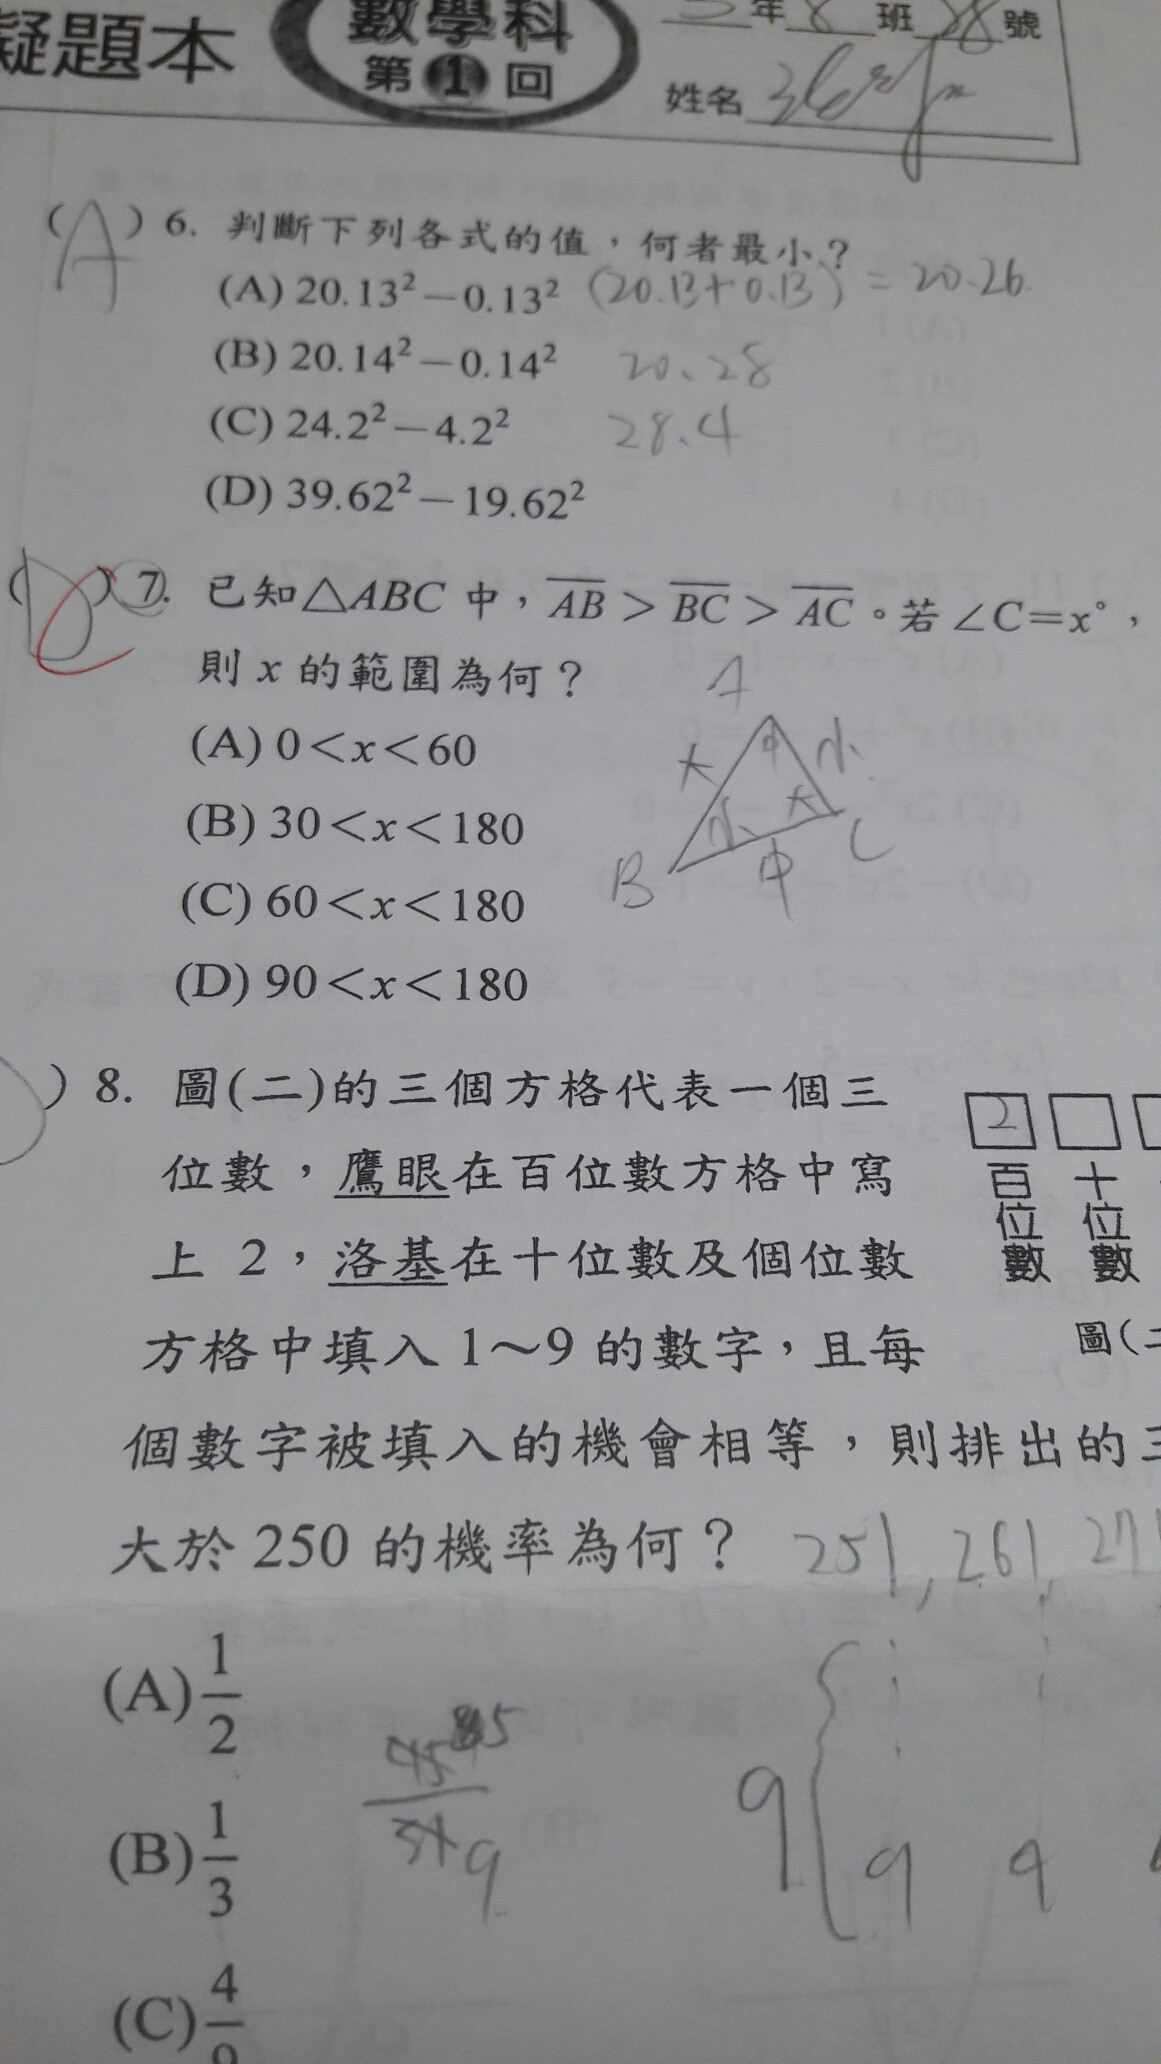 擬題本
數學科
第1回
年8班28號
姓名
(A)6. 判斷下列各式的值，何者最小？
(A) 20.13²－0.13² (20.13+0.13) = 20.26
(B) 20.14²－0.14² 20.28
(C) 24.2²－4.2² 28.4
(D) 39.62²－19.62²
(D)7. 已知△ABC 中，AB＞BC＞AC。若∠C＝x°，
則 x 的範圍為何？
(A) 0＜x＜60
(B) 30＜x＜180
(C) 60＜x＜180
(D) 90＜x＜180
A
大 中 小
小 大
B 中 C
)8. 圖(二)的三個方格代表一個三
位數，鷹眼在百位數方格中寫
上 2，洛基在十位數及個位數
方格中填入 1～9 的數字，且每
個數字被填入的機會相等，則排出的三
大於 250 的機率為何？ 251, 261, 271
2
百位數 十位數
圖(二
(A) 1/2
(B) 1/3
(C) 4/9
45
9
9 { 9 9